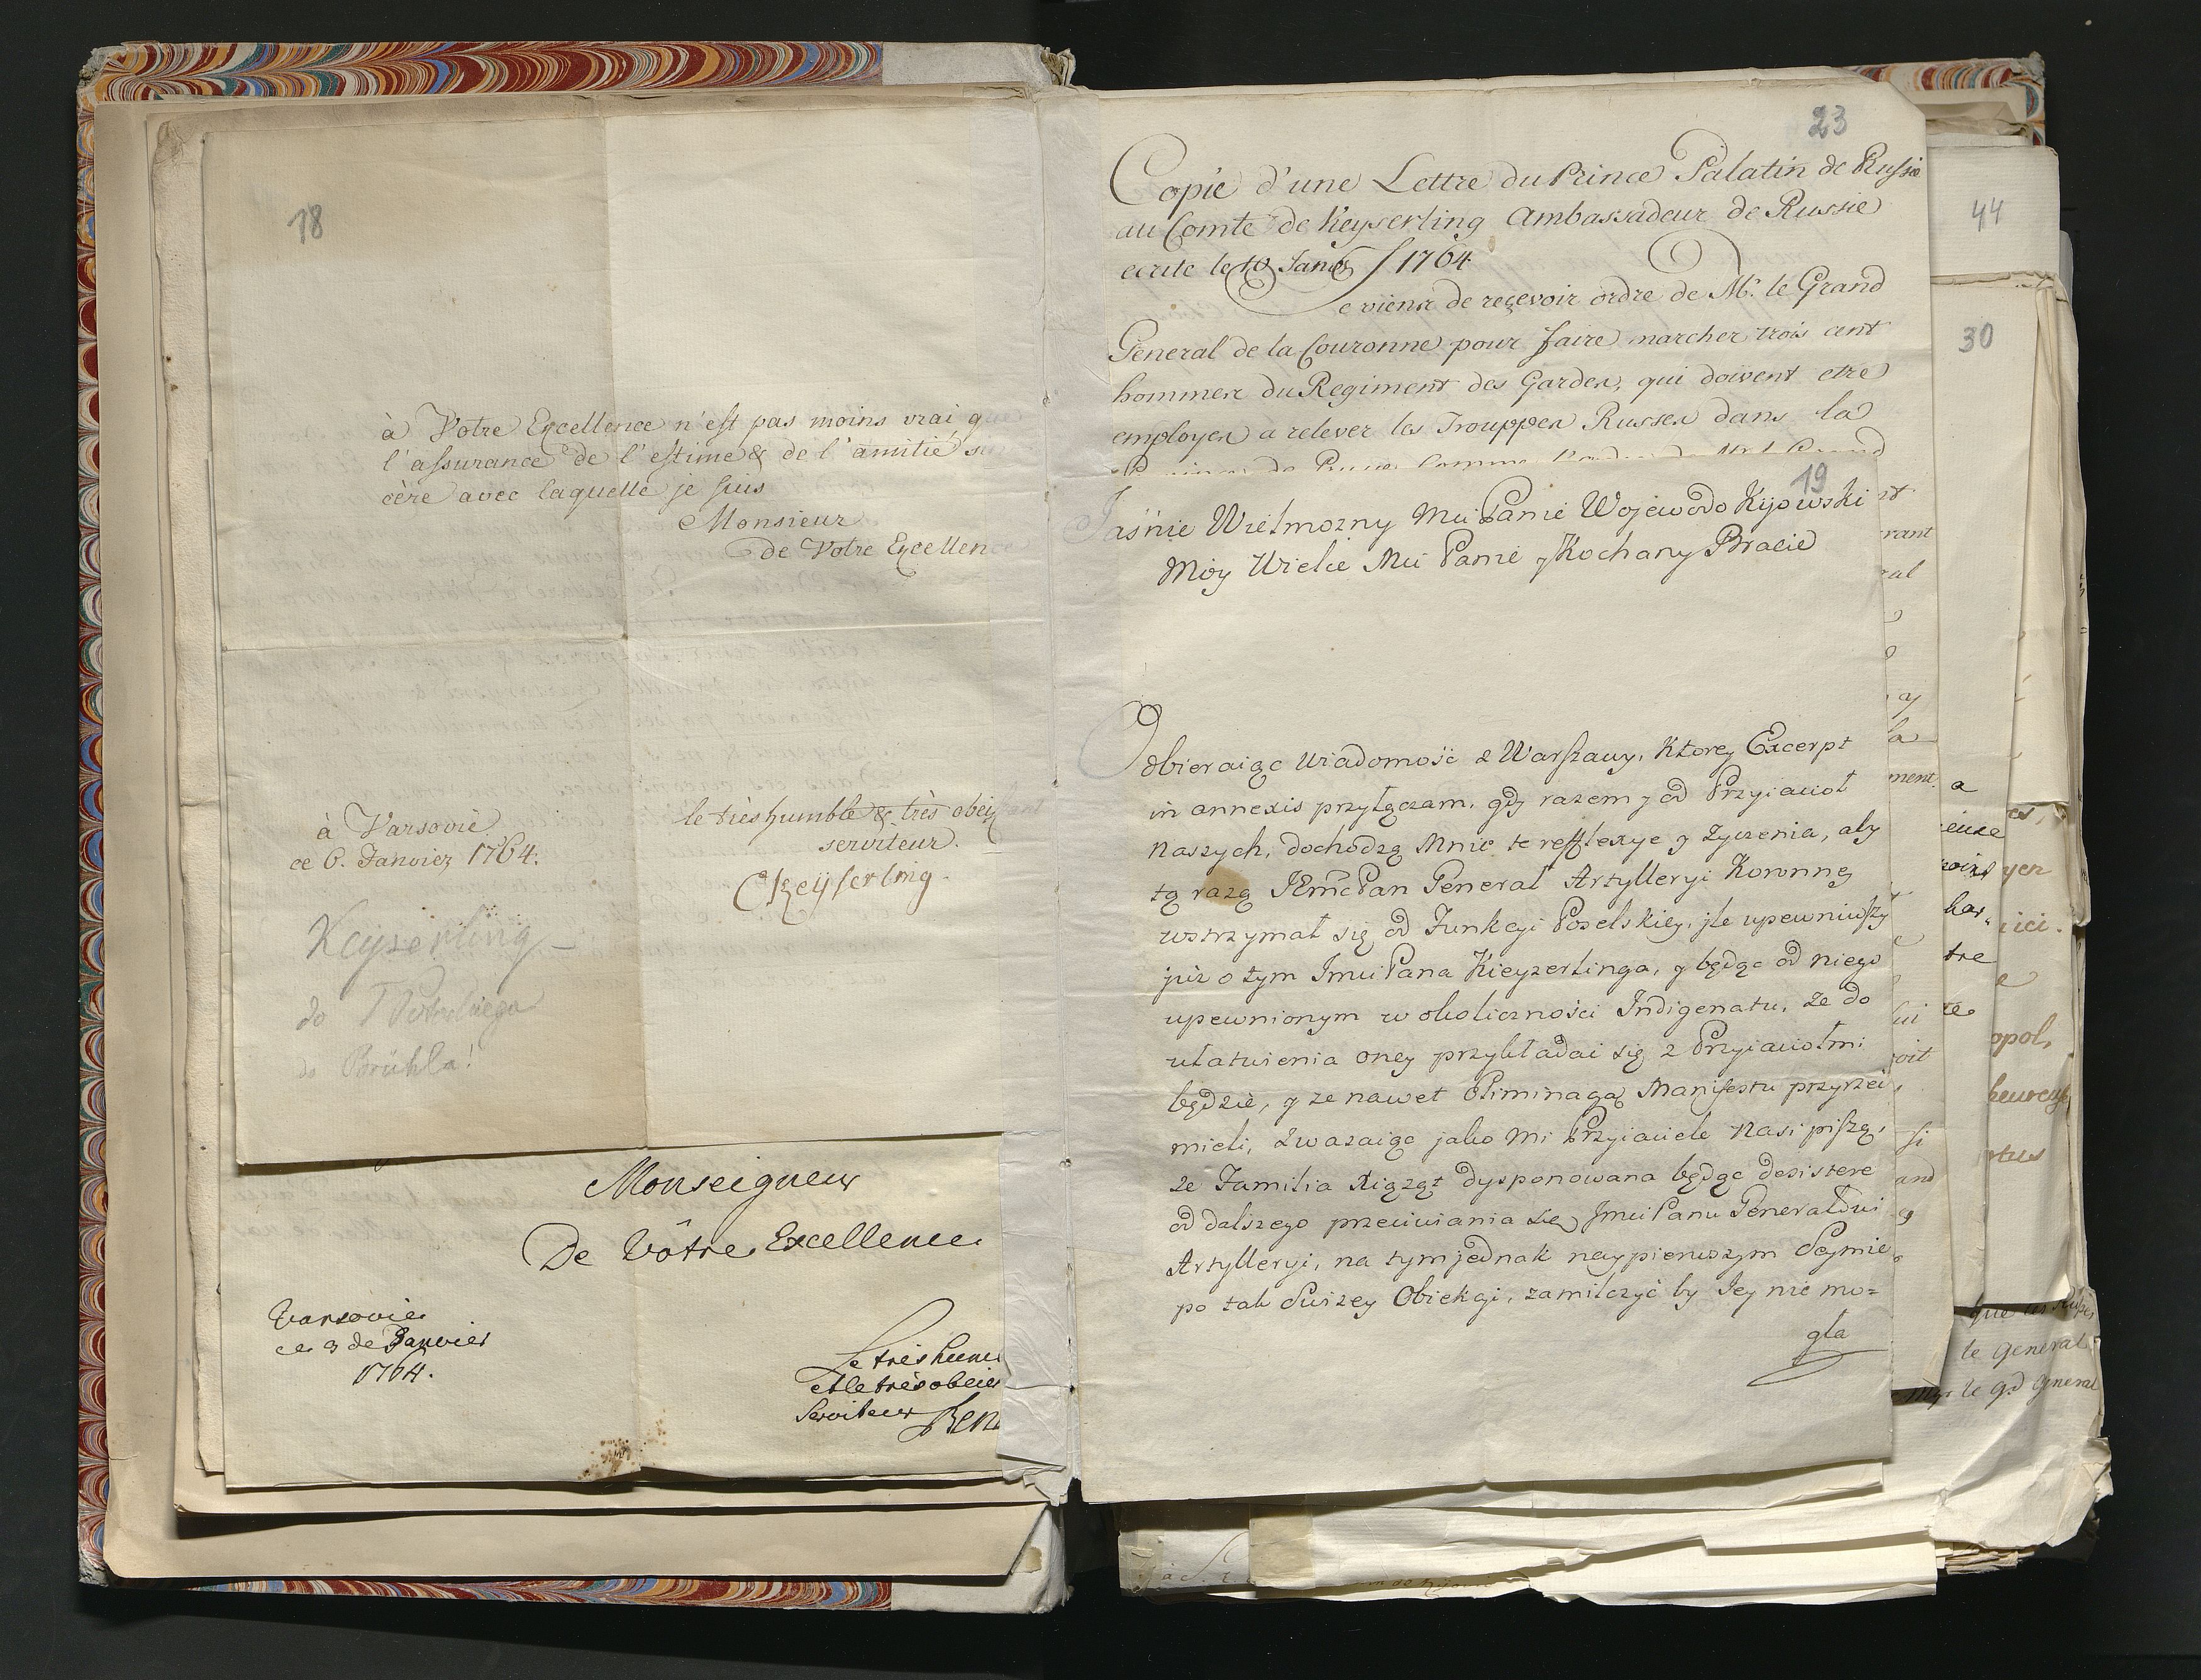 18
à Votre Excellence n'est pas moins vrai, que
l'assurance de l'estime & de l'amitié sin
cère avec laquelle je suis
Monsieur
de Votre Excellence
le très humble & très obeissant
serviteur.
CKeyserling.
à Varsovie
ce 6. Janvier 1764.
Keyserling –
do
do Brühla!
Monseigneur
De Vôtre Excellence
Varsovie
ce 3 de Janvier
1764.
Le très hum
et le très obeis
Serviteur
23
Copie d'une Lettre du Prince Palatin de Russie
au Comte de Keyserling Ambassadeur de Russie
ecrite le 10 Janv 1764
Je viens de reçevoir ordre de Mr. le Grand
General de la Couronne pour faire marcher trois cent
hommes du Regiment des Gardes, qui doivent etre
employes a relever les Trouppes Russes dans la
19
Jaśnie Wielmozny Mci Panie Wojewodo Kijowski
Moy Wielce Mci Panie y Kochany Bracie
Odbieraiąc wiadomość z Warszawy, Ktorey Excerpt
in annexis przyłączam, gdy razem y od Przyiacioł
naszych, dochodzą Mnie te refflexye y zyczenia, aby
tą razą JEmć Pan Generał Artylleryi Koronney
wstrzymał się od Funkcyi Poselskiey, jle upewniwszy
juz o tym Jmci Pana Kieyzerlinga, y będąc od niego
upewnionym w okoliczności Indigenatu, ze do
ułatwienia oney przykładać się z Przyiaciołmi
będzie, y ze nawet Eliminagą Manifestu przyrzei
mieli, zwazaiąc jako mi Przyiaciele Nasi piszą,
ze Familia Xiąząt dysponowana będąc desistere
od dalszego przeciwiania się Jmci Panu Generałowi
Artylleryi, na tym jednak naypierwszym Seymie
po tak swiezey Obiekcyi, zamilczyć by Jey nie mo=
gła
44
30
rant
ral
y
la
ment.
a
tre
ici.
opol,
and
le General
le gd General